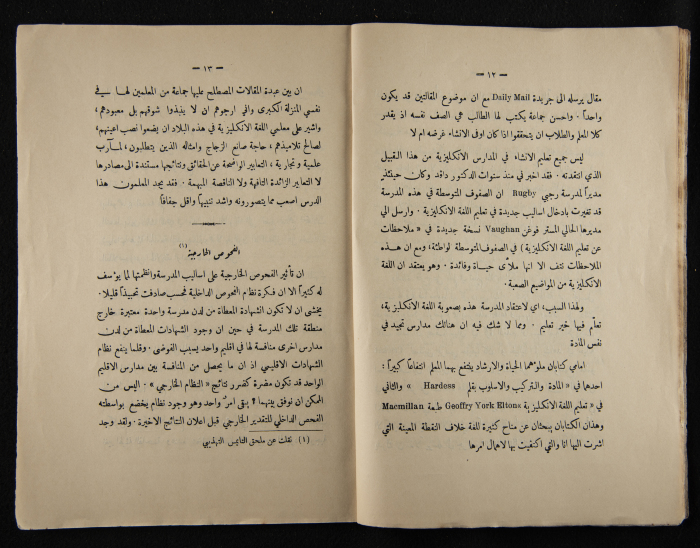 — ١٢ —
مقال يرسله الى جريدة Daily Mail مع ان موضوع المقالتين قد يكون
واحداً . واحسن جماعة يكتب لها الطالب هي الصف نفسه اذ يقدر
كلا المعلم والطلاب ان يتحققوا اذا كان اوفى الانشاء غرضه ام لا
ليس جميع تعليم الانشاء في المدارس الانكليزية من هذا القبيل
الذي انتقدته . فقد اخبر في منذ سنوات الدكتور دافد وكان حينئذٍ
مديراً لمدرسة رجبي Rugby ان الصفوف المتوسطة في هذه المدرسة
قد تغيرت بادخال اساليب جديدة في تعليم اللغة الانكليزية . وارسل الي
مديرها الحالي المستر فوغن Vaughan نسخة جديدة في « ملاحظات
عن تعليم اللغة الانكليزية ) في الصفوف المتوسطة لواطئة، ومع ان هذه
الملاحظات نتف الا انها ملأى حياة وفائدة . وهو يعتقد ان اللغة
الانكليزية من المواضيع الصعبة .
ولهذا السبب، اي لاعتقاد المدرسة هذه بصعوبة اللغة الانكليزية،
تعلّم فيها خير تعليم . ومما لا شك فيه ان هنالك مدارس تجيد في
نفس المادة
امامي كتابان ملؤهما الحياة والارشاد ينتفع بهما المعلم انتفاعاً كبيراً :
احدها في « المادة والتركيب والاسلوب بقلم Hardess » والثاني
في « تعليم اللغة الانكليزية » Geoffry York Elton طبعة Macmillan
وهذان الكتابان يبحثان عن مناح كثيرة للغة خلاف النقطة المعينة التي
اشرت اليها انا والتي اكتفيت بها لاهمال امرها
— ١٣ —
ان بين عبدة المقالات المصطلح عليها جماعة من المعلمين لها في
نفسي المنزلة الكبرى واني ارجوهم ان لا ينبذوا شوقيهم بل معبودهم،
واشير على معلمي اللغة الانكليزية في هذه البلاد ان يضعوا نصب اعينهم،
لصالح تلاميذهم ، حاجة صانع الزجاج وامثاله الذين يتطلبون، لمآرب
علمية وتجارية ، التعابير الواضحة عن الحقائق ونتائجها مستندة الى مصادرها
لا التعابير الزائدة التافهة ولا الناقصة المبهمة . فقد يجد المعلمون هذا
الدرس اصعب مما يتصورونه واشد تنبيهاً واقل جفافاً
الفحوص الخارجية (١)
ان تأثير الفحوص الخارجية على اساليب المدرسة وانظمتها لما يؤسف
له كثيراً الا ان فكرة نظام الفحوص الداخلية لم تحسب صادفت تحبيذاً قليلا .
يخشى ان لا تكون الشهادة المعطاة من لدن مدرسة واحدة معتبرة خارج
منطقة تلك المدرسة في حين ان وجود الشهادات المعطاة من لدن
مدارس اخرى منافسة لها في اقليم واحد يسبب الفوضى . وقلما ينفع نظام
الشهادات الاقليمي اذ ان ما يحصل من المنافسة بين مدارس الاقليم
الواحد قد تكون مضرة كضرر نتائج « النظام الخارجي » . اليس من
الممكن ان نوفق بينهما ؟ بقى امرٌ واحد وهو وجود نظام يخضع بواسطته
الفحص الداخلي للتقدير الخارجي قبل اعلان النتائج الاخيرة . ولقد وجد
(١) نقلت عن ملحق التايمس التهذيبي